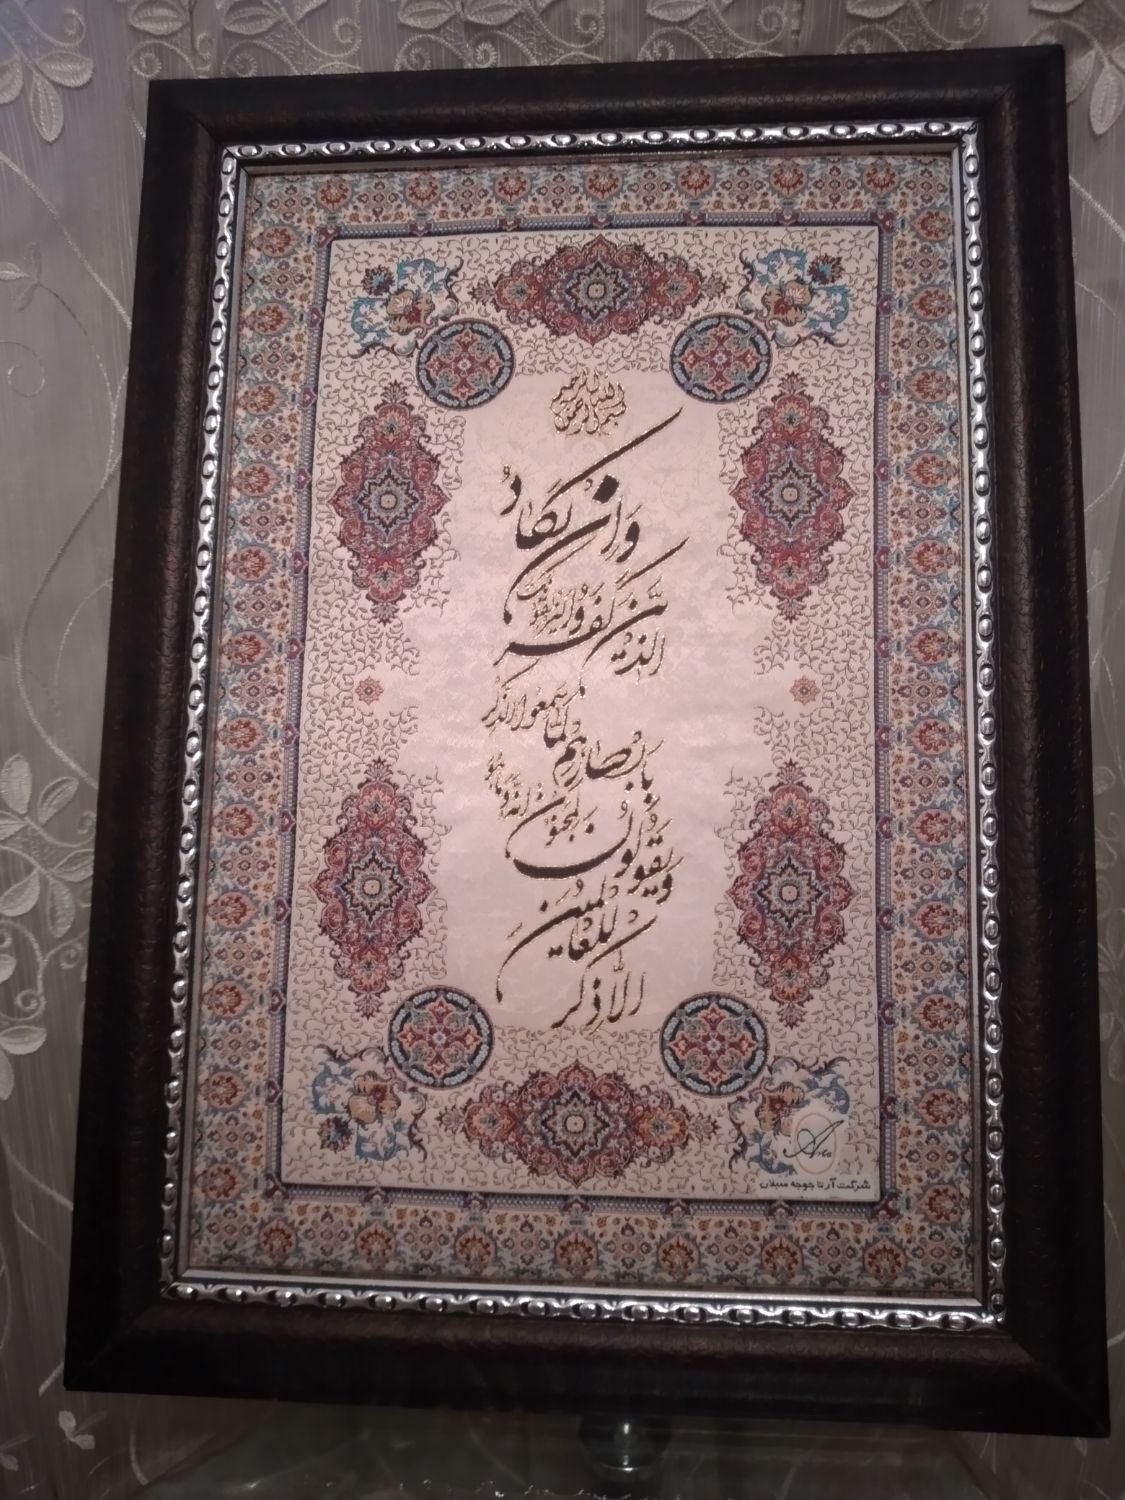 بسم الله الرحمن الرحیم
وَاِن یَکادُ
الذین کفروا لیزلقونک
بابصارهم لما سمعوا الذکر
ویقولون انه لمجنون وما هو
الا ذکر للعالمین
Arta
شرکت آرتا جوجه سبلان